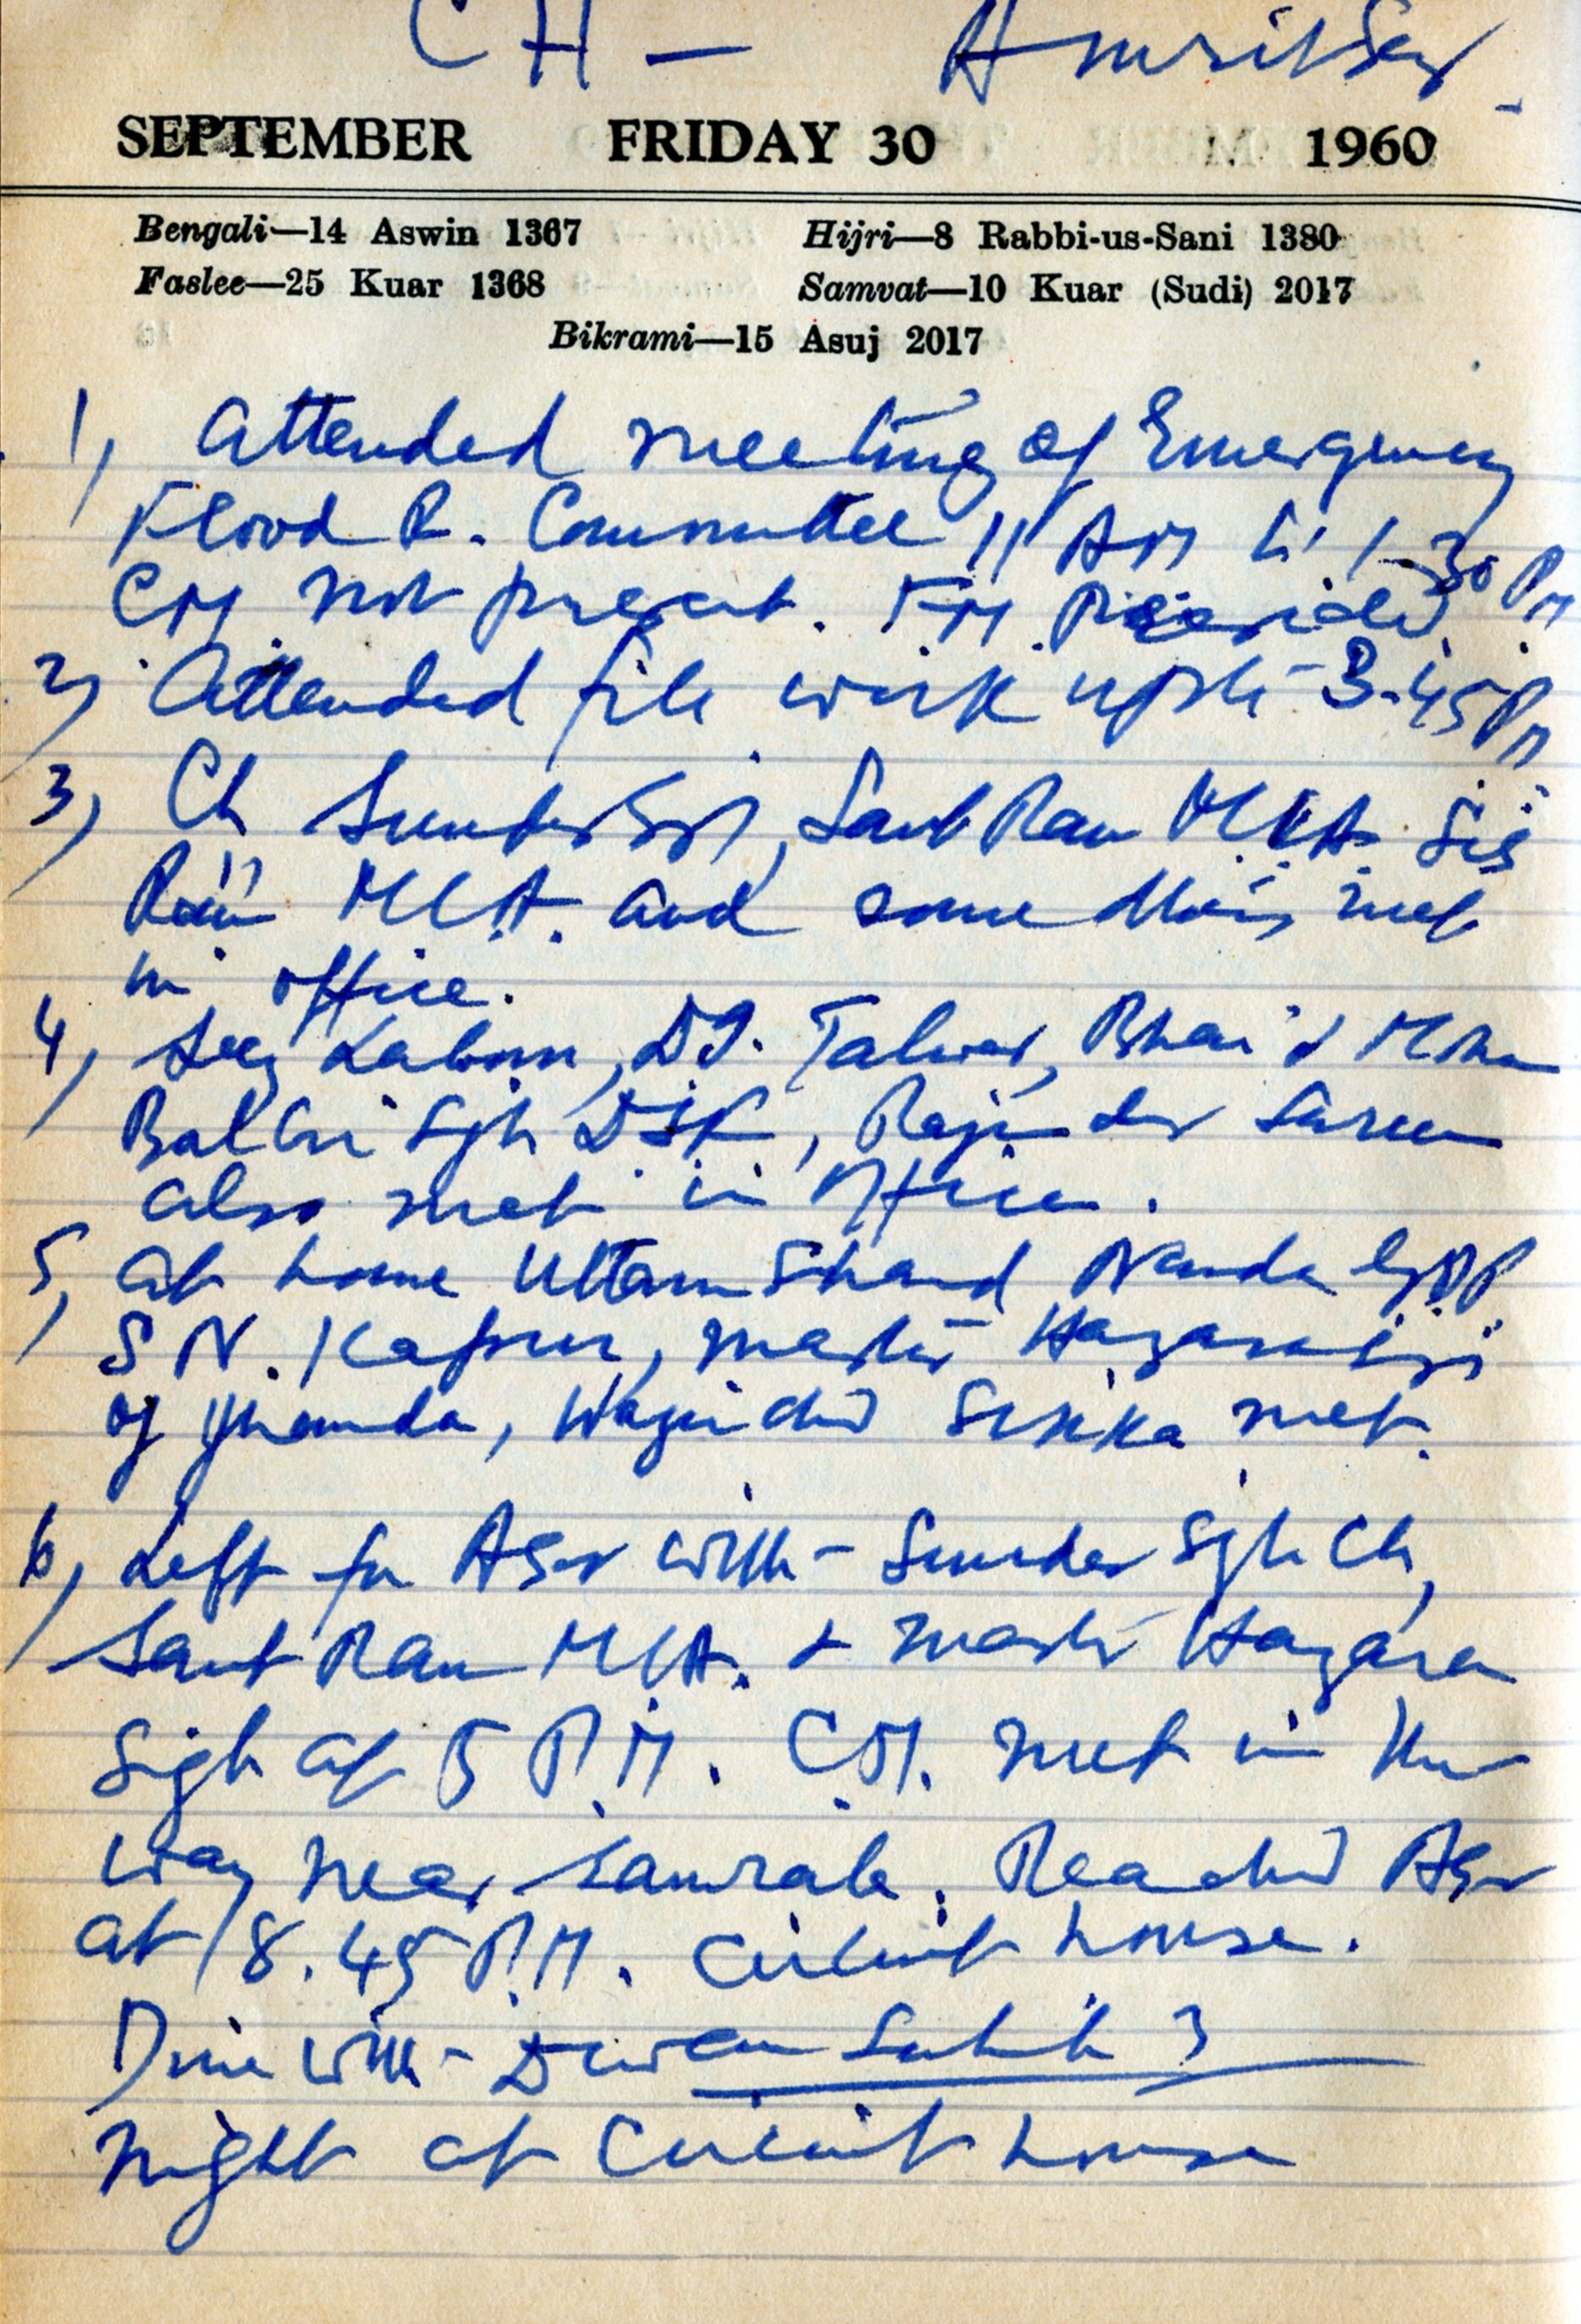 CH — Amritsar
SEPTEMBER FRIDAY 30 1960
Bengali—14 Aswin 1367 Hijri—8 Rabbi-us-Sani 1380
Faslee—25 Kuar 1368 Samvat—10 Kuar (Sudi) 2017
Bikrami—15 Asuj 2017
1, Attended meeting of Emergency
Flood R. Committee 11 AM to 1-30 PM
CM not present. FM Presided.
2, Attended file work upto 3-45 PM
3, Ch Sunder Sgh, Sant Ram MLA.
Ram MLA. and some others met
in office.
4, Secy Labour, D.I. Talwar, Bhai &
Balbir Sgh DSP, Rajinder Sareen
also met in office.
5, At home Uttam Chand Nanda
S N. Kapur, master Hazara
of, Wazir Chd Sikka met.
6, Left for ASr with - Sunder Sgh Ch,
Sant Ram MLA. & master Hazara
Sigh at 5 P.M. CM. met in the
way near Samrala. Reached ASr
at 8.45 P.M. Circuit house.
Dine with - Dewan Sahib
Night at Circuit house